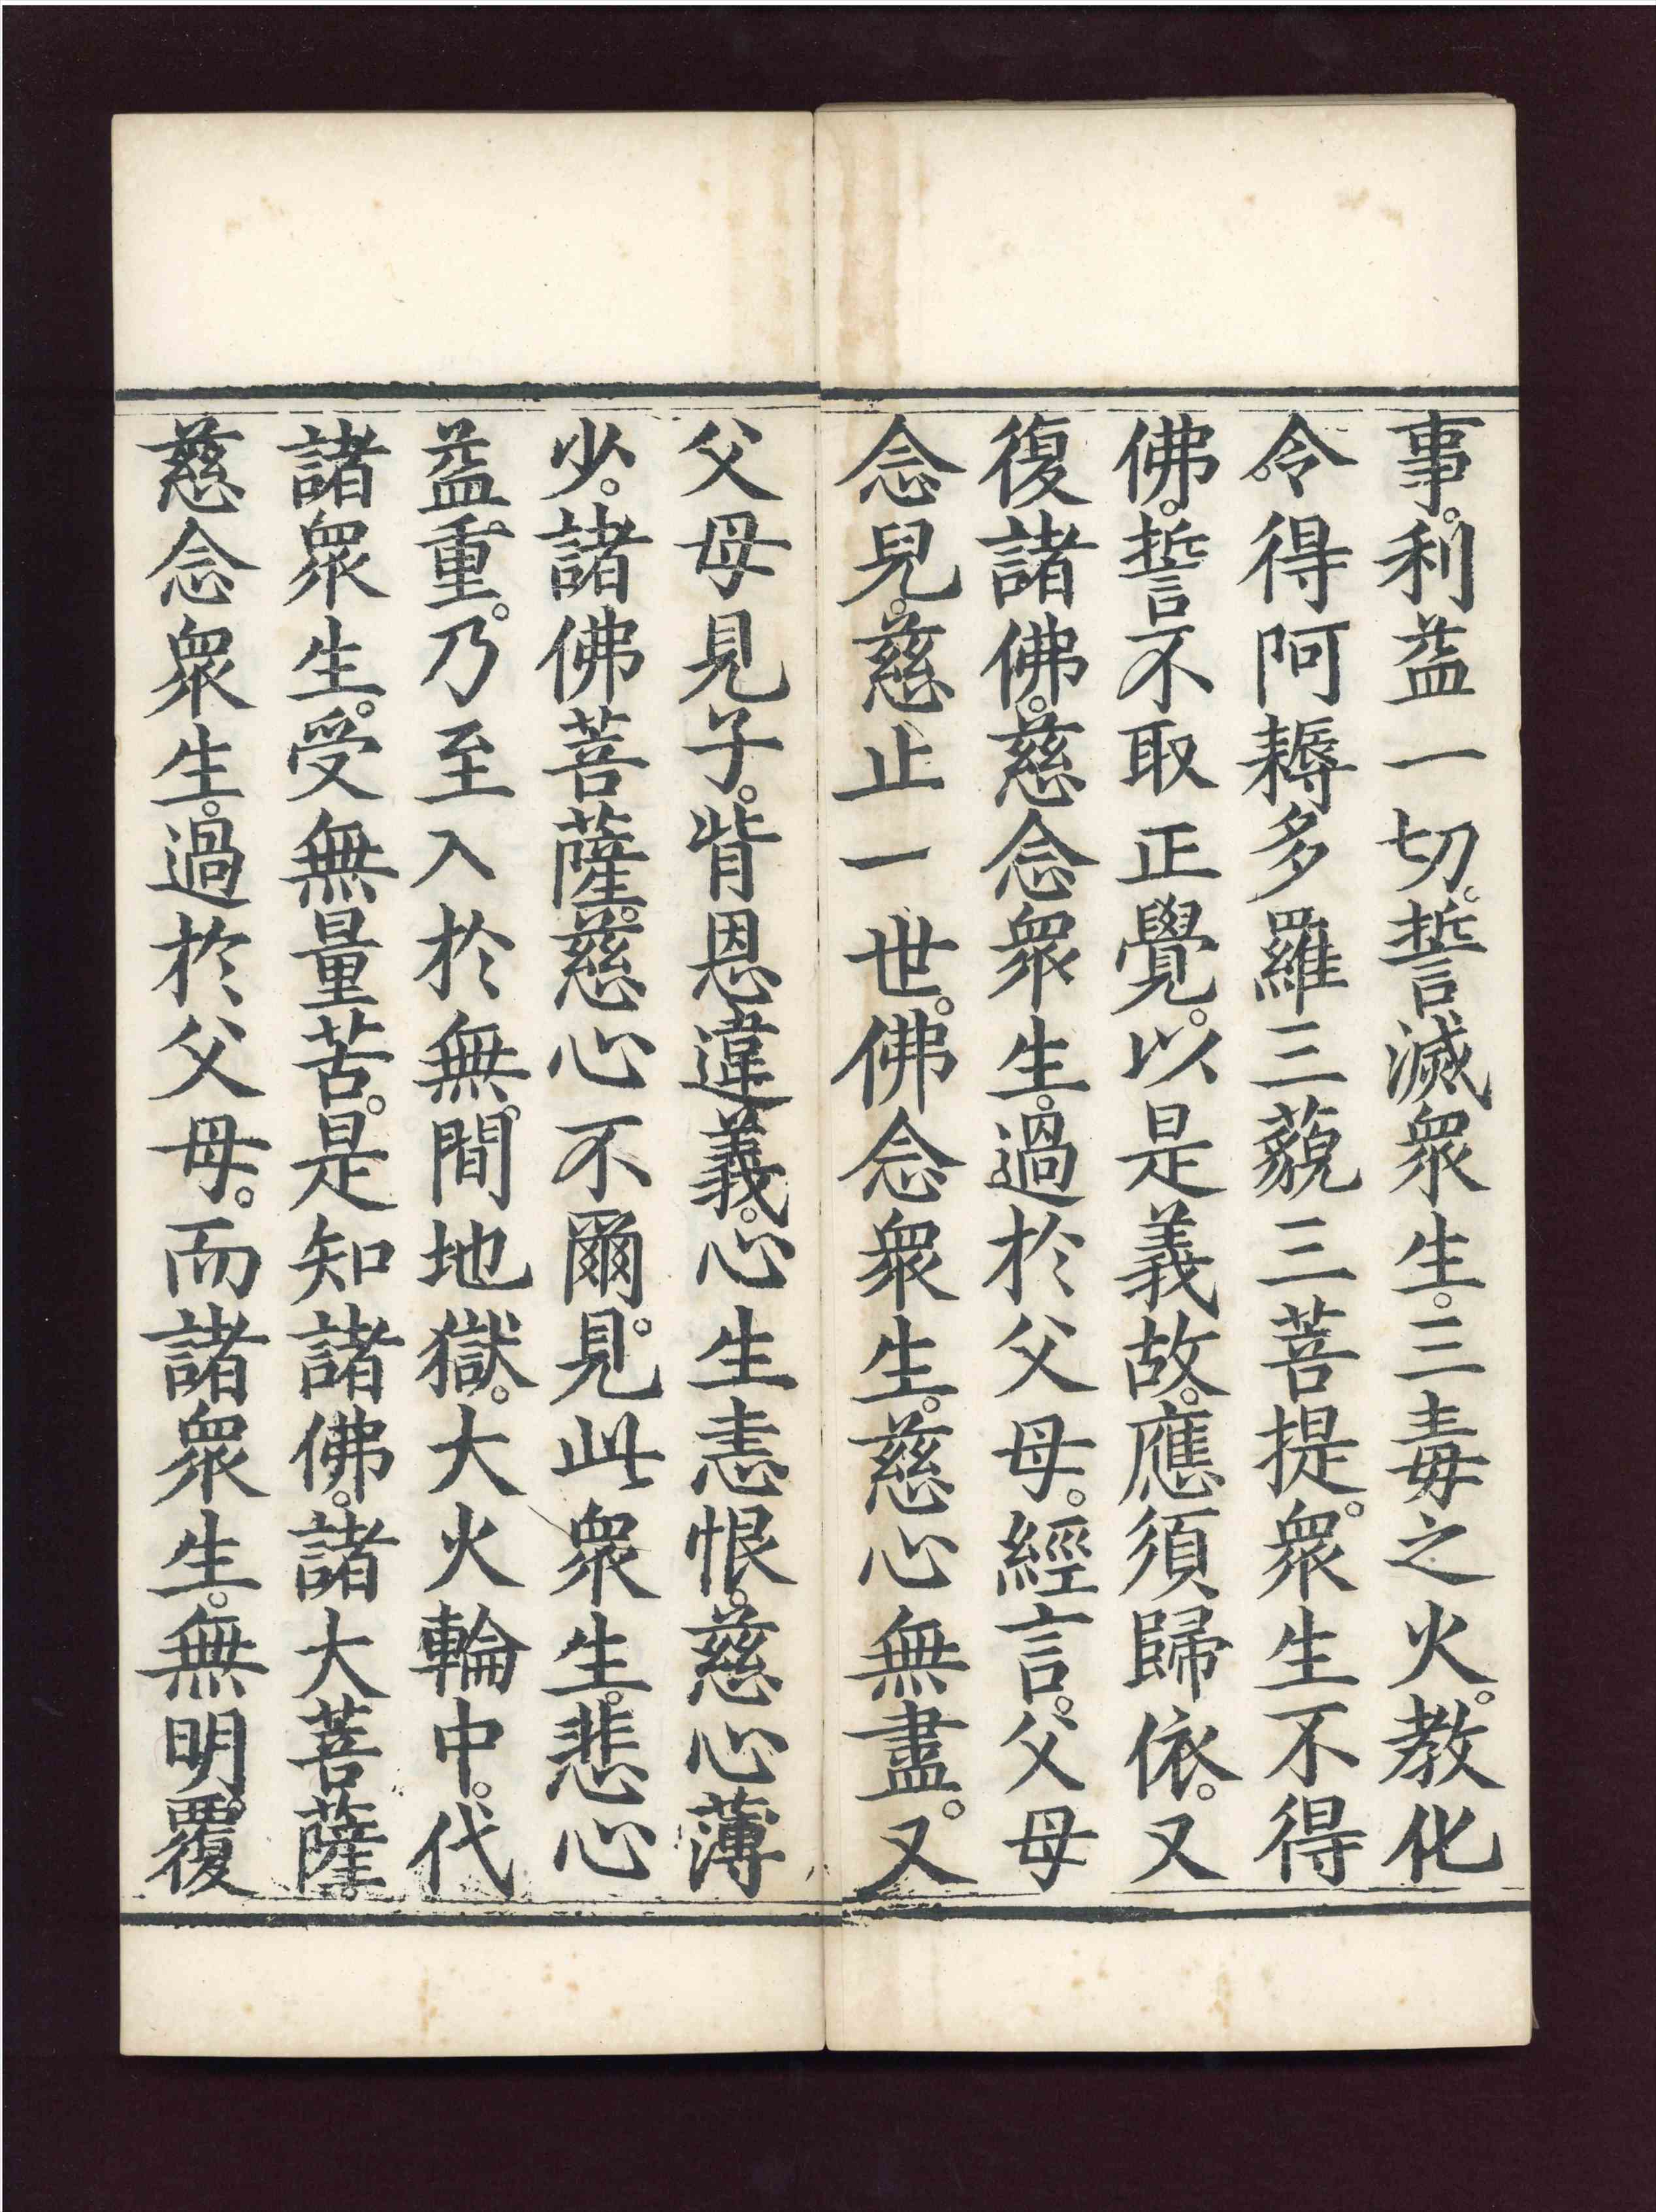 事。利益一切。誓滅眾生。三毒之火。教化
令得阿耨多羅三藐三菩提。眾生不得
佛。誓不取正覺。以是義故。應須歸依。又
復諸佛。慈念眾生。過於父母。經言。父母
念兒。慈止一世。佛念眾生。慈心無盡。又
父母見子。背恩違義。心生恚恨。慈心薄
少。諸佛菩薩。慈心不爾。見此眾生。悲心
益重。乃至入於無間地獄。大火輪中。代
諸眾生。受無量苦。是知諸佛。諸大菩薩。
慈念眾生。過於父母。而諸眾生。無明覆